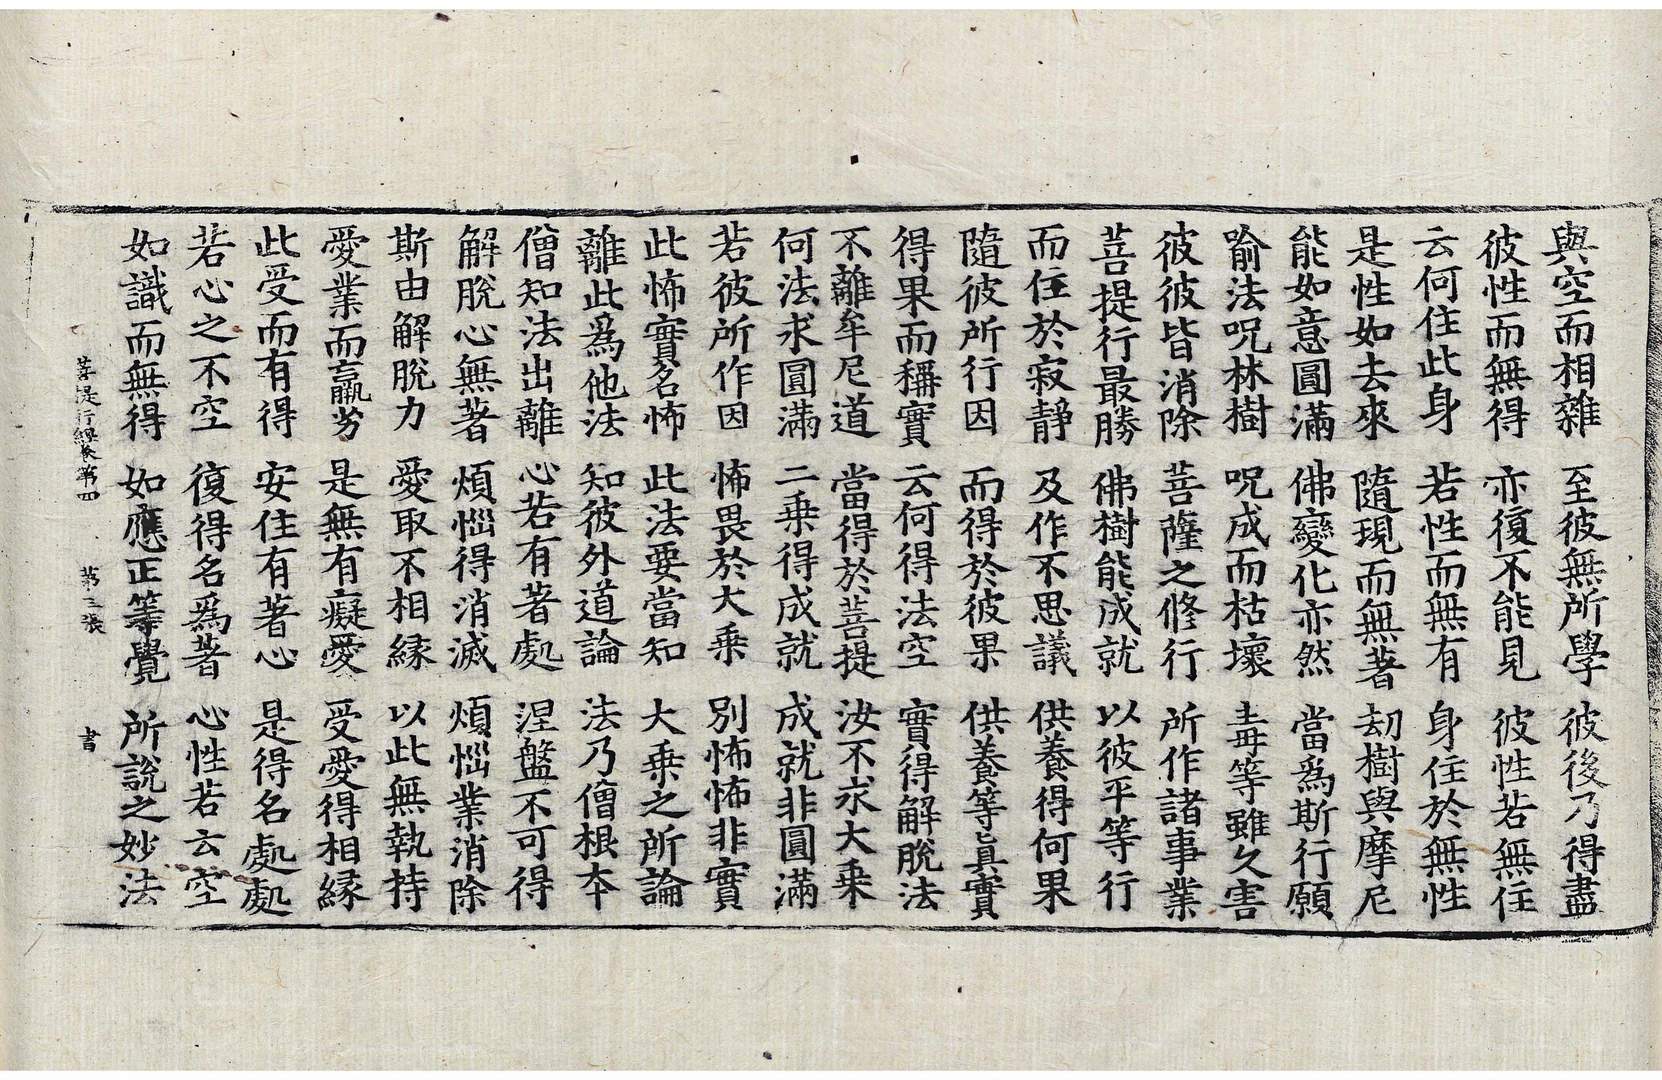 與空而相雜 至彼無所學 彼後乃得盡
彼性而無得 亦復不能見 彼性若無住
云何住此身 若性而無有 身住於無性
是性如去來 隨現而無著 刧樹與摩尼
能如意圓滿 佛變化亦然 當爲斯行願
喻法呪林樹 呪成而枯壞 毒等雖久害
彼彼皆消除 菩薩之修行 所作諸事業
菩提行最勝 佛樹能成就 以彼平等行
而住於寂靜 及作不思議 供養得何果
隨彼所行因 而得於彼果 供養等真實
得果而稱實 云何得法空 實得解脫法
不離牟尼道 當得於菩提 汝不求大乘
何法求圓滿 二乘得成就 成就非圓滿
若彼所作因 怖畏於大乘 別怖怖非實
此怖實名怖 此法要當知 大乘之所論
離此爲他法 知彼外道論 法乃僧根本
僧知法出離 心若有著處 涅盤不可得
解脫心無著 煩惱得消滅 煩惱業消除
斯由解脫力 愛取不相緣 以此無執持
愛業而羸劣 是無有癡愛 受愛得相緣
此受而有得 安住有著心 是得名處處
若心之不空 復得名爲著 心性若云空
如識而無得 如應正等覺 所說之妙法
菩提行經卷第四 第三張 書